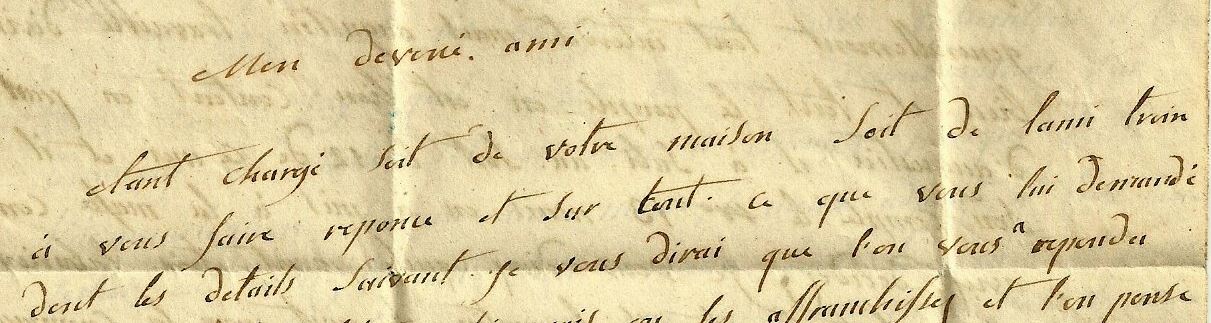 Mon devoué. ami
etant chargé soit de votre maison soit de lami troin
à vous faire reponse et sur tout. ce que vous lui demandé
dont les details suivant. je vous dirai que l'on vous a repondu
les affranchissez et l'on pense